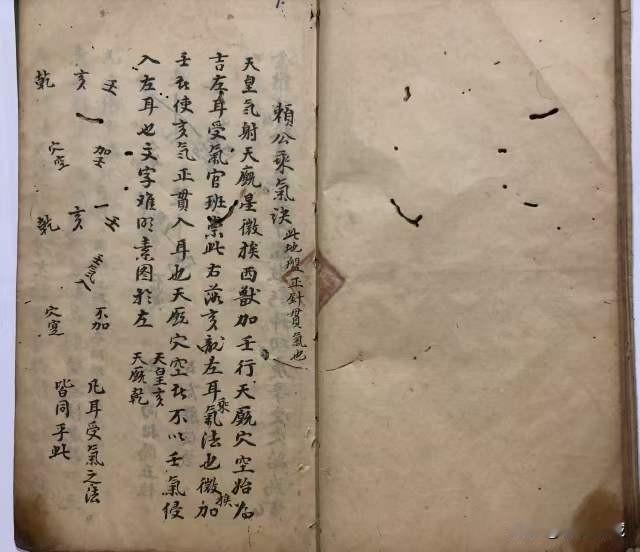 賴公乘氣決 此地盤正針貫氣也
天皇氣射天廐星微挨西獸加壬行天廐穴空始為
吉左耳受氣官班崇此右落亥龍左耳乘氣法也微挨加
壬於使亥氣正貫入耳也天廐穴空於不以壬氣侵
入左耳也文字难明素图於左
天皇亥
天廐乾
壬 加壬 壬 不加
亥 亥 壬气入
乾 穴空 乾 穴寬
凡耳受氣之法
皆同乎此